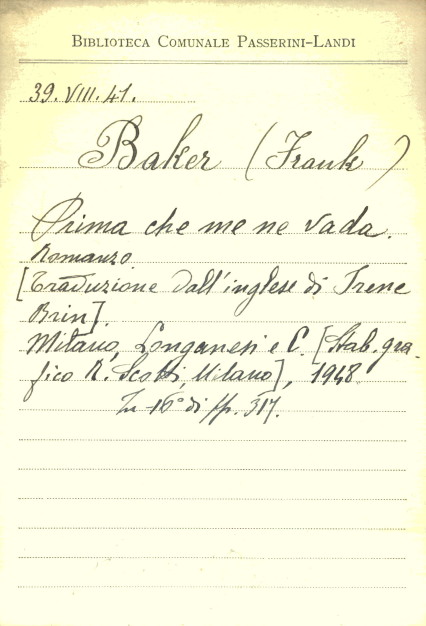 BIBLIOTECA COMUNALE PASSERINI-LANDI
39. VIII. 41.
Baker (Frank)
Prima che me ne vada.
Romanzo
[Traduzione dall'inglese di Irene
Brin].
Milano, Longanesi e C. [Stab. gra-
fico R. Scotti, Milano], 1948.
In 16° di pp. 317.